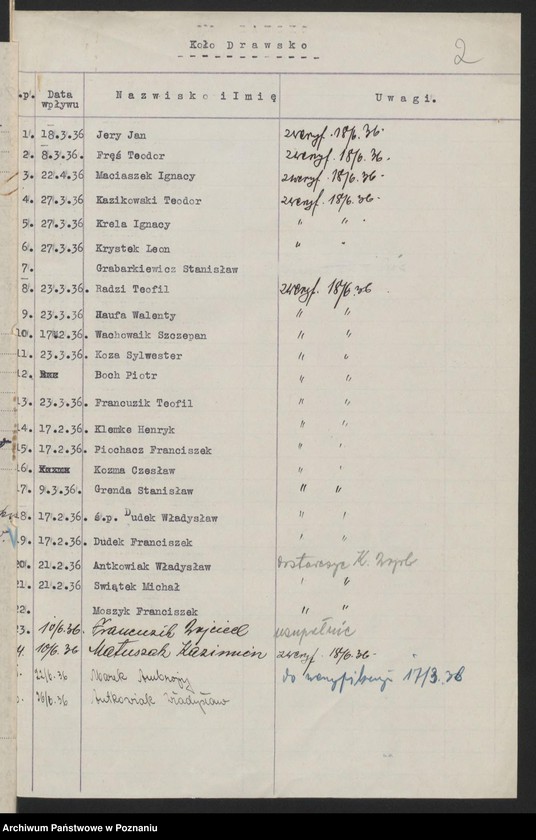 Koło Drawsko
2
.p. Data wpływu Nazwisko i Imię Uwagi.
1. 18.3.36 Jery Jan zweryf. 18/6.36.
2. 8.3.36. Fręś Teodor zweryf. 18/6.36.
3. 22.4.36 Maciaszek Ignacy zweryf. 18/6.36.
4. 27.3.36 Kazikowski Teodor zweryf. 18/6.36.
5. 27.3.36 Krela Ignacy " "
6. 27.3.36 Krystek Leon " "
7. Grabarkiewicz Stanisław
8. 23.3.36. Radzi Teofil zweryf. 18/6.36
9. 23.3.36 Haufa Walenty " "
10. 17.2.36. Wachowaik Szczepan " "
11. 23.3.36. Koza Sylwester " "
12. Boch Piotr " "
13. 23.3.36. Francuzik Teofil " "
14. 17.2.36. Klemke Henryk " "
15. 17.2.36. Piochacz Franciszek " "
16. Kozma Czesław " "
17. 9.3.36. Grenda Stanisław " "
18. 17.2.36. ś.p. Dudek Władysław " "
19. 17.2.36. Dudek Franciszek " "
20. 21.2.36. Antkowiak Władysław dostarczyć K.
21. 21.2.36 Swiątek Michał " "
22. Moszyk Franciszek " "
23. 10/6.36. Francuzik Wojciech uzupełnić
4. 10/6.36 Matuszak Kazimierz zweryf. 18/6.36.
22/6.36 Marek Antoni do weryfikacji 17/3.36
26/6.36 Antkowiak Władysław
Archiwum Państwowe w Poznaniu